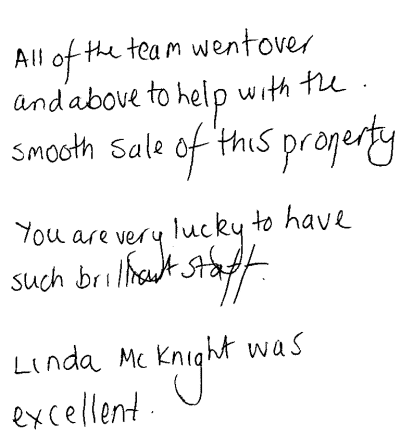 All of the team went over
and above to help with the
smooth sale of this property
You are very lucky to have
such brilliant staff.
Linda McKnight was
excellent.